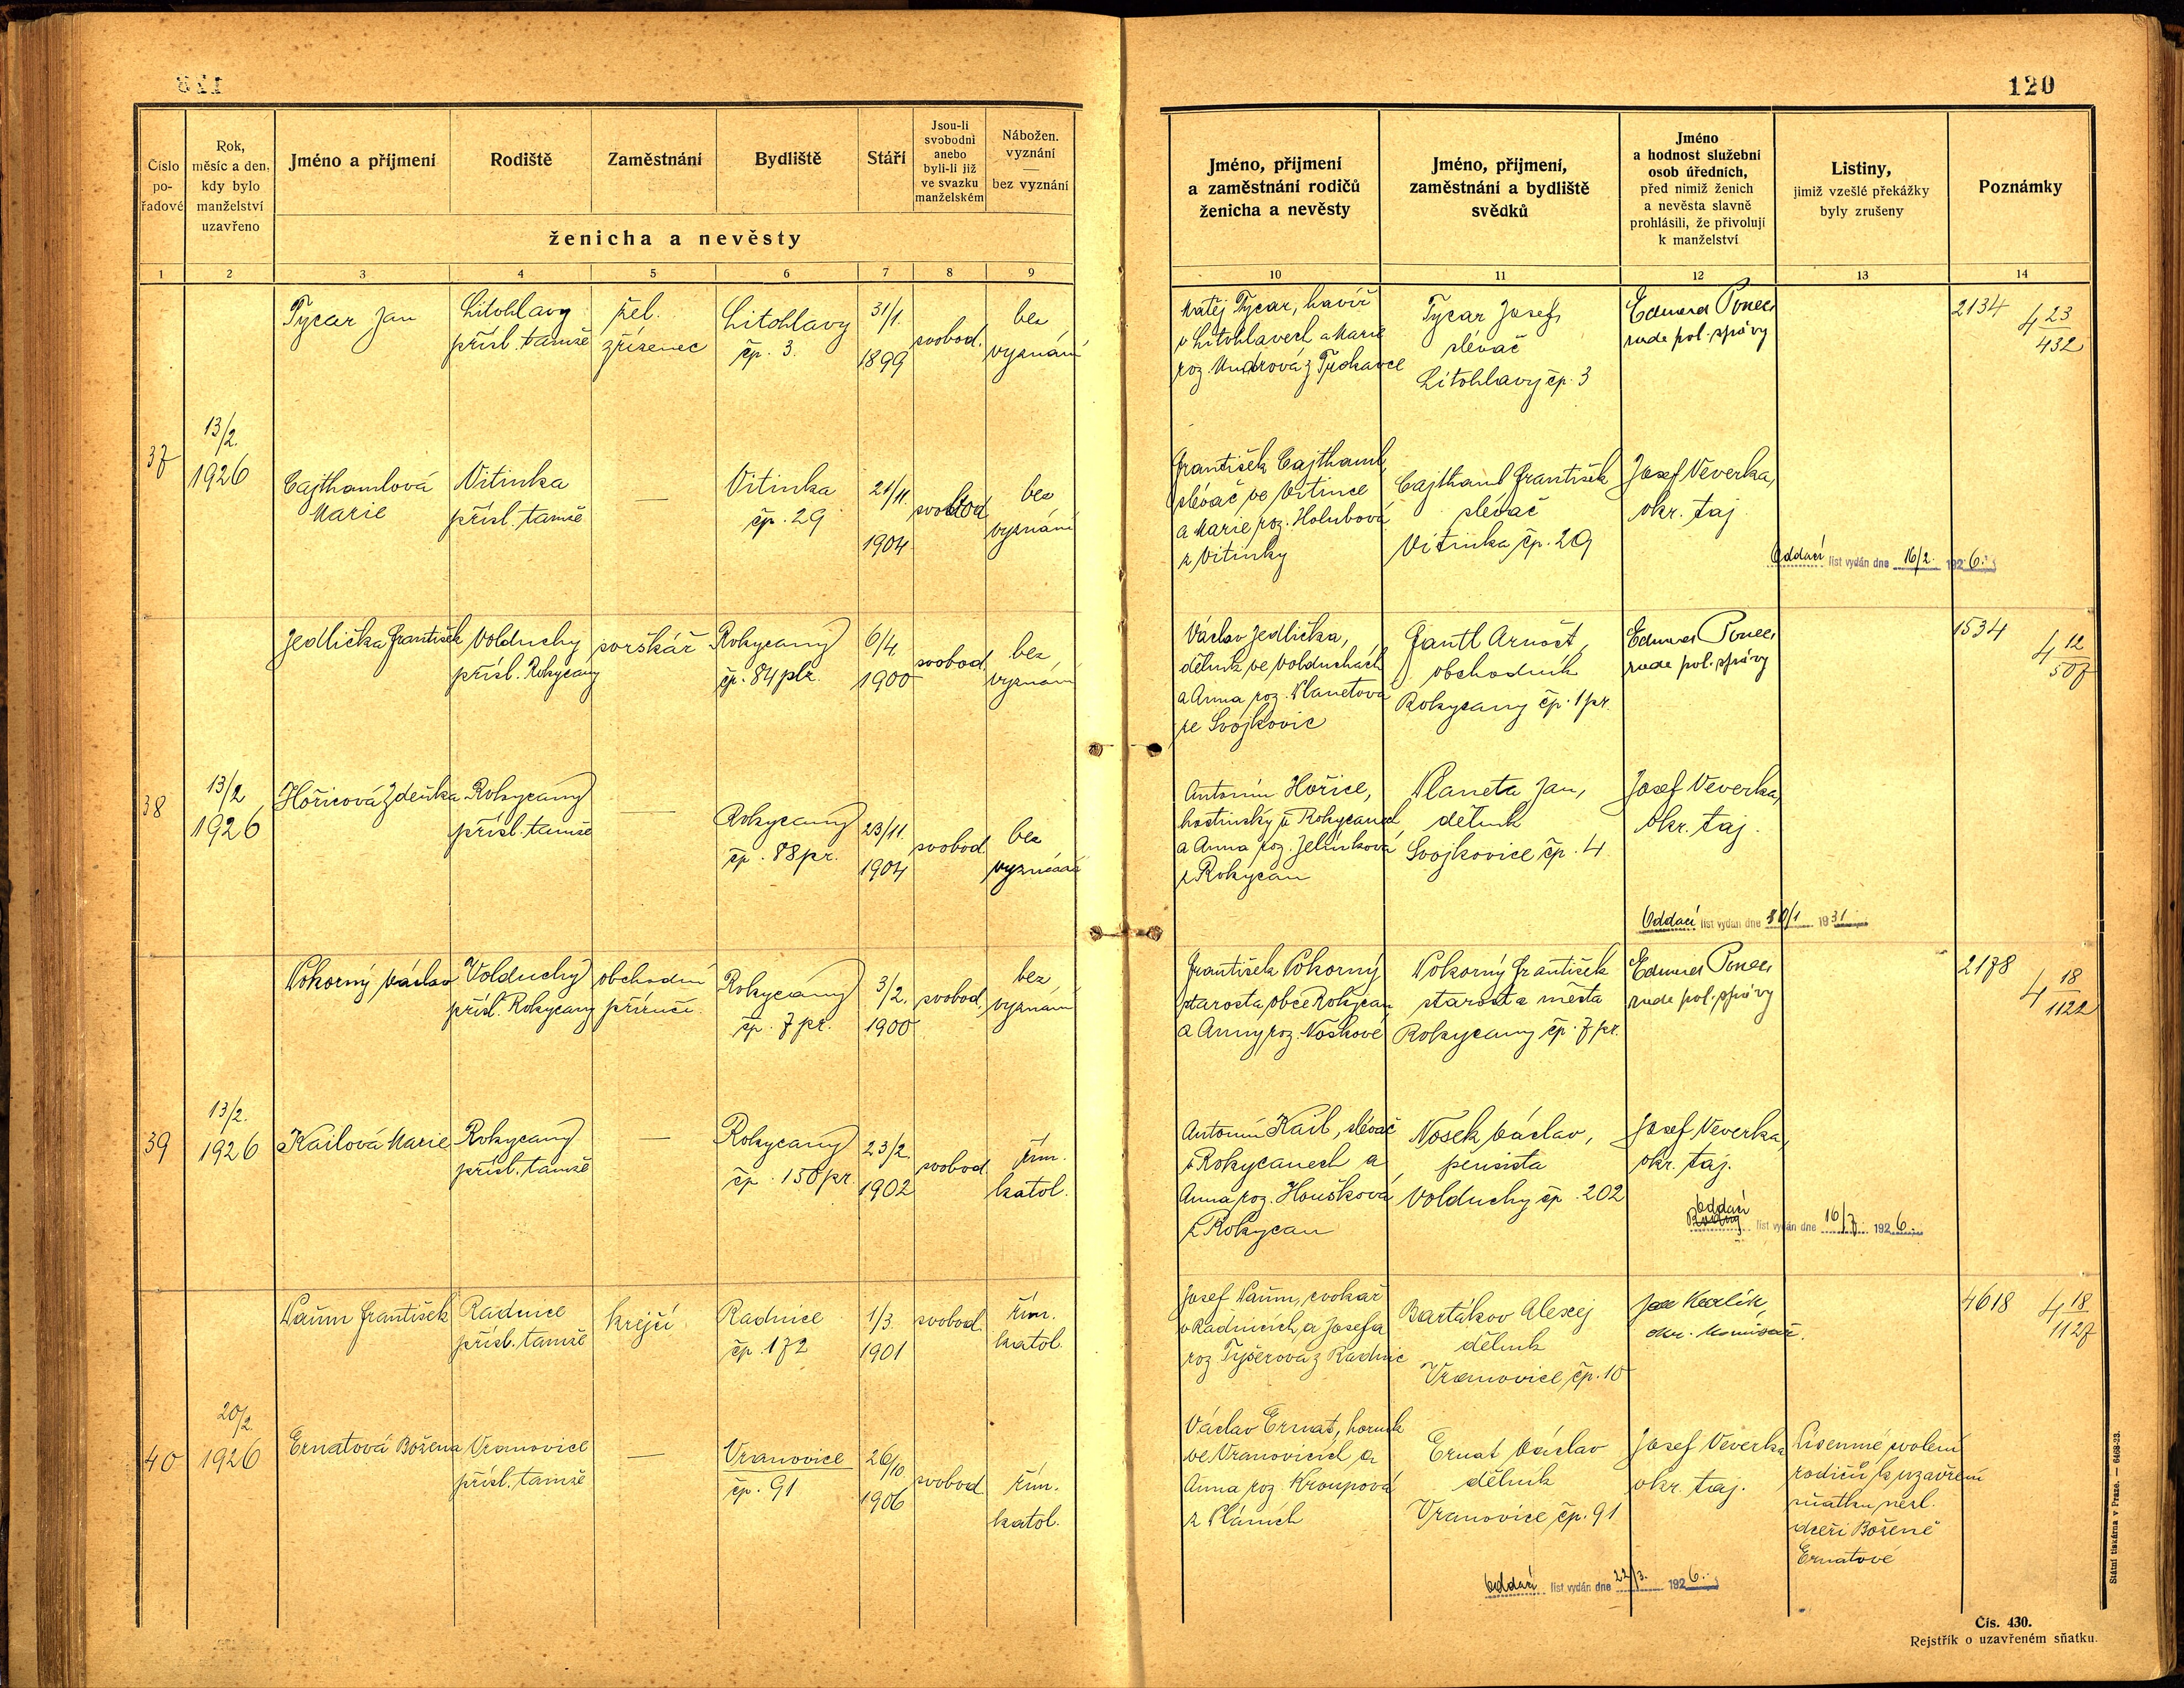 120
Číslo
po-
řadové
Rok,
měsíc a den,
kdy bylo
manželství
uzavřeno
Jméno a příjmení
Rodiště
Zaměstnání
Bydliště
Stáří
Jsou-li
svobodni
anebo
byli-li již
ve svazku
manželském
Nábožen.
vyznání
—
bez vyznání
ženicha a nevěsty
1 2 3 4 5 6 7 8 9
Jméno, příjmení
a zaměstnání rodičů
ženicha a nevěsty
Jméno, příjmení,
zaměstnání a bydliště
svědků
Jméno
a hodnost služební
osob úředních,
před nimiž ženich
a nevěsta slavně
prohlásili, že přivolují
k manželství
Listiny,
jimiž vzešlé překážky
byly zrušeny
Poznámky
10 11 12 13 14
37
13/2.
1926
Tycar Jan
Litohlavy
přísl. tamže
žel.
zřízenec
Litohlavy
čp. 3.
31/1.
1899
svobod.
bez
vyznání
Matěj Tycar, havíř
v Litohlavech a Marie
roz.
Tycar Josef,
slévač
Litohlavy čp. 3
Eduard Ponec,
rada pol. správy
2134
4 23/432
Cajthamlová
Marie
Vitinka
přísl. tamže
—
Vitinka
čp. 29
21/11.
1904
svobod
bez
vyznání
František Cajthaml,
slévač ve Vitince
a Marie roz. Holubová
z Vitinky
Cajthaml František
slévač
Vitinka čp. 29
Josef Veverka,
okr. taj.
Oddací list vydán dne 16/2. 1926.
38
13/2
1926
Jedlička František
Volduchy
přísl. Rokycany
sorškář
Rokycany
čp. 84 plz.
6/4.
1900
svobod
bez
vyznání
Václav Jedlička,
dělník ve Volduchách
a Anna roz. Planetová
ze Svojkovic
Gantl Arnošt,
obchodník
Rokycany čp. 1 pr.
Eduard Ponec,
rada pol. správy
1534
4 12/507
Hořicová Zdeňka
Rokycany
přísl. tamže
—
Rokycany
čp. 88 pr.
23/11.
1904
svobod
bez
vyznání
Antonín Hořice,
hostinský v Rokycanech
a Anna roz. Jelínková
z Rokycan
Planeta Jan,
dělník
Svojkovice čp. 4
Josef Veverka,
okr. taj.
Oddací list vydán dne 30/1 1931
39
13/2.
1926
Pokorný Václav
Volduchy
přísl. Rokycany
obchodní
příručí.
Rokycany
čp. 7 pr.
3/2.
1900
svobod
bez
vyznání
František Pokorný
starosta obce Rokycan
a Anny roz. Noskové
Pokorný František
starosta města
Rokycany čp. 7 pr.
Eduard Ponec,
rada pol. správy
2178
4 18/1122
Kailová Marie
Rokycany
přísl. tamže
—
Rokycany
čp. 150 pr.
23/2.
1902
svobod
řím.
katol.
Antonín Kail, slévač
v Rokycanech a
Anna roz. Houšková
z Rokycan
Nosek Václav,
pensista
Volduchy čp. 202
Josef Veverka,
okr. taj.
Oddací list vydán dne 16/7. 1926.
40
20/2.
1926
Paším František
Radnice
přísl. tamže
krejčí
Radnice
čp. 172
1/3.
1901
svobod.
řím.
katol.
Josef Paším, cvokař
v Radnicích a Josefa
roz. Tyšerová z Radnic
Bartákov Alexej
dělník
Vranovice čp. 10
Jan Karlík,
okr. komisař.
4618
4 18/1127
Ernatová Božena
Vranovice
přísl. tamže
—
Vranovice
čp. 91
26/10
1906
svobod
řím.
katol.
Václav Ernat, horník
ve Vranovicích a
Anna roz. Kroupová
z Pláních
Ernat Václav
dělník
Vranovice čp. 91
Josef Veverka
okr. taj.
Písemné svolení
rodičů k uzavření
sňatku nezl.
dceři Boženě
Ernatové
Oddací list vydán dne 22/3. 1926.
Státní tiskárna v Praze. — 6468-23.
Čís. 430.
Rejstřík o uzavřeném sňatku.